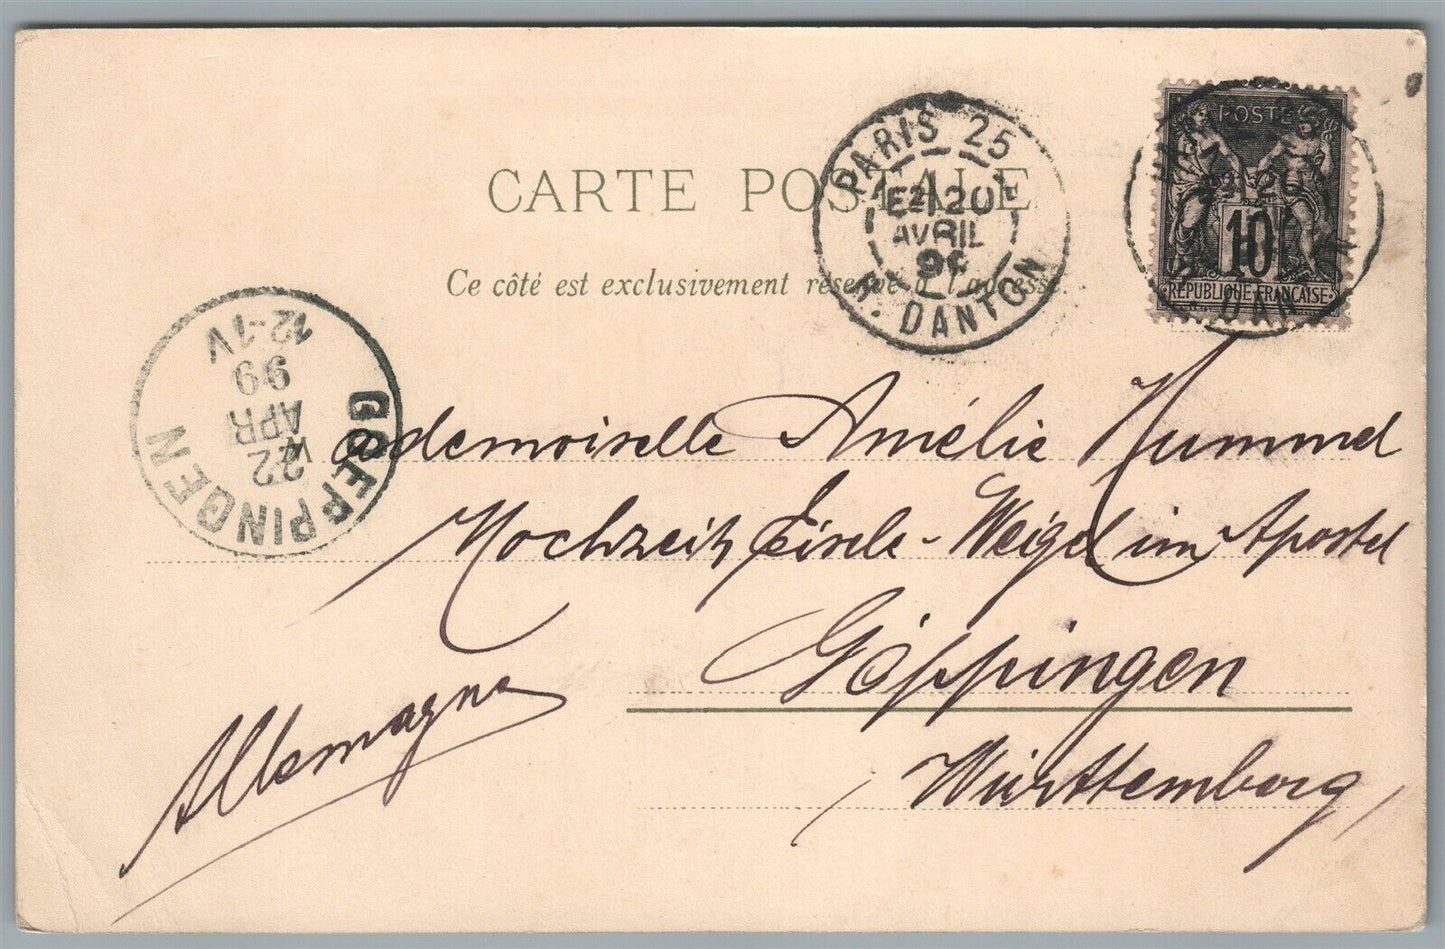 CARTE POSTALE
Ce côté est exclusivement réservé à l'adresse.
PARIS 25
E2 20
AVRIL
99
R. DANTON
POSTES
10
RÉPUBLIQUE FRANÇAISE
DAN
GOEPPINGEN
22
APR
99
12-1V
Mademoiselle Amélie Hummel
Hochzeit Eisele-Weigel im Apostel
Göppingen
Württemberg
Allemagne